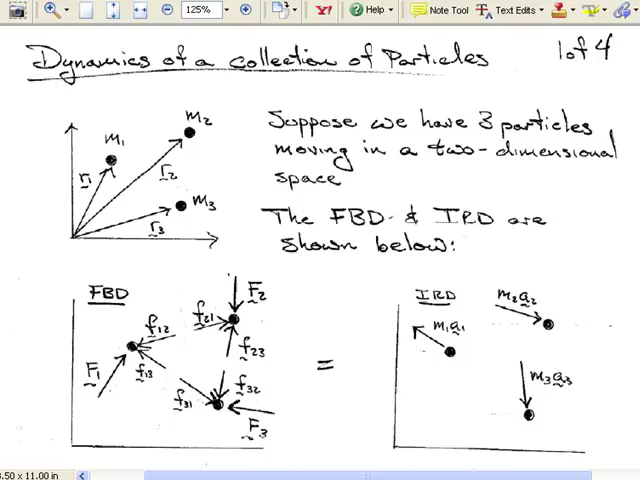 125%
Help
Note Tool
Text Edits
Dynamics of a collection of Particles
1 of 4
m1
m2
m3
r1
r2
r3
Suppose we have 3 particles
moving in a two-dimensional
space
The FBD & IRD are
shown below:
FBD
F1
F2
F3
f12
f21
f13
f31
f23
f32
=
IRD
m1a1
m2a2
m3a3
8.50 x 11.00 in